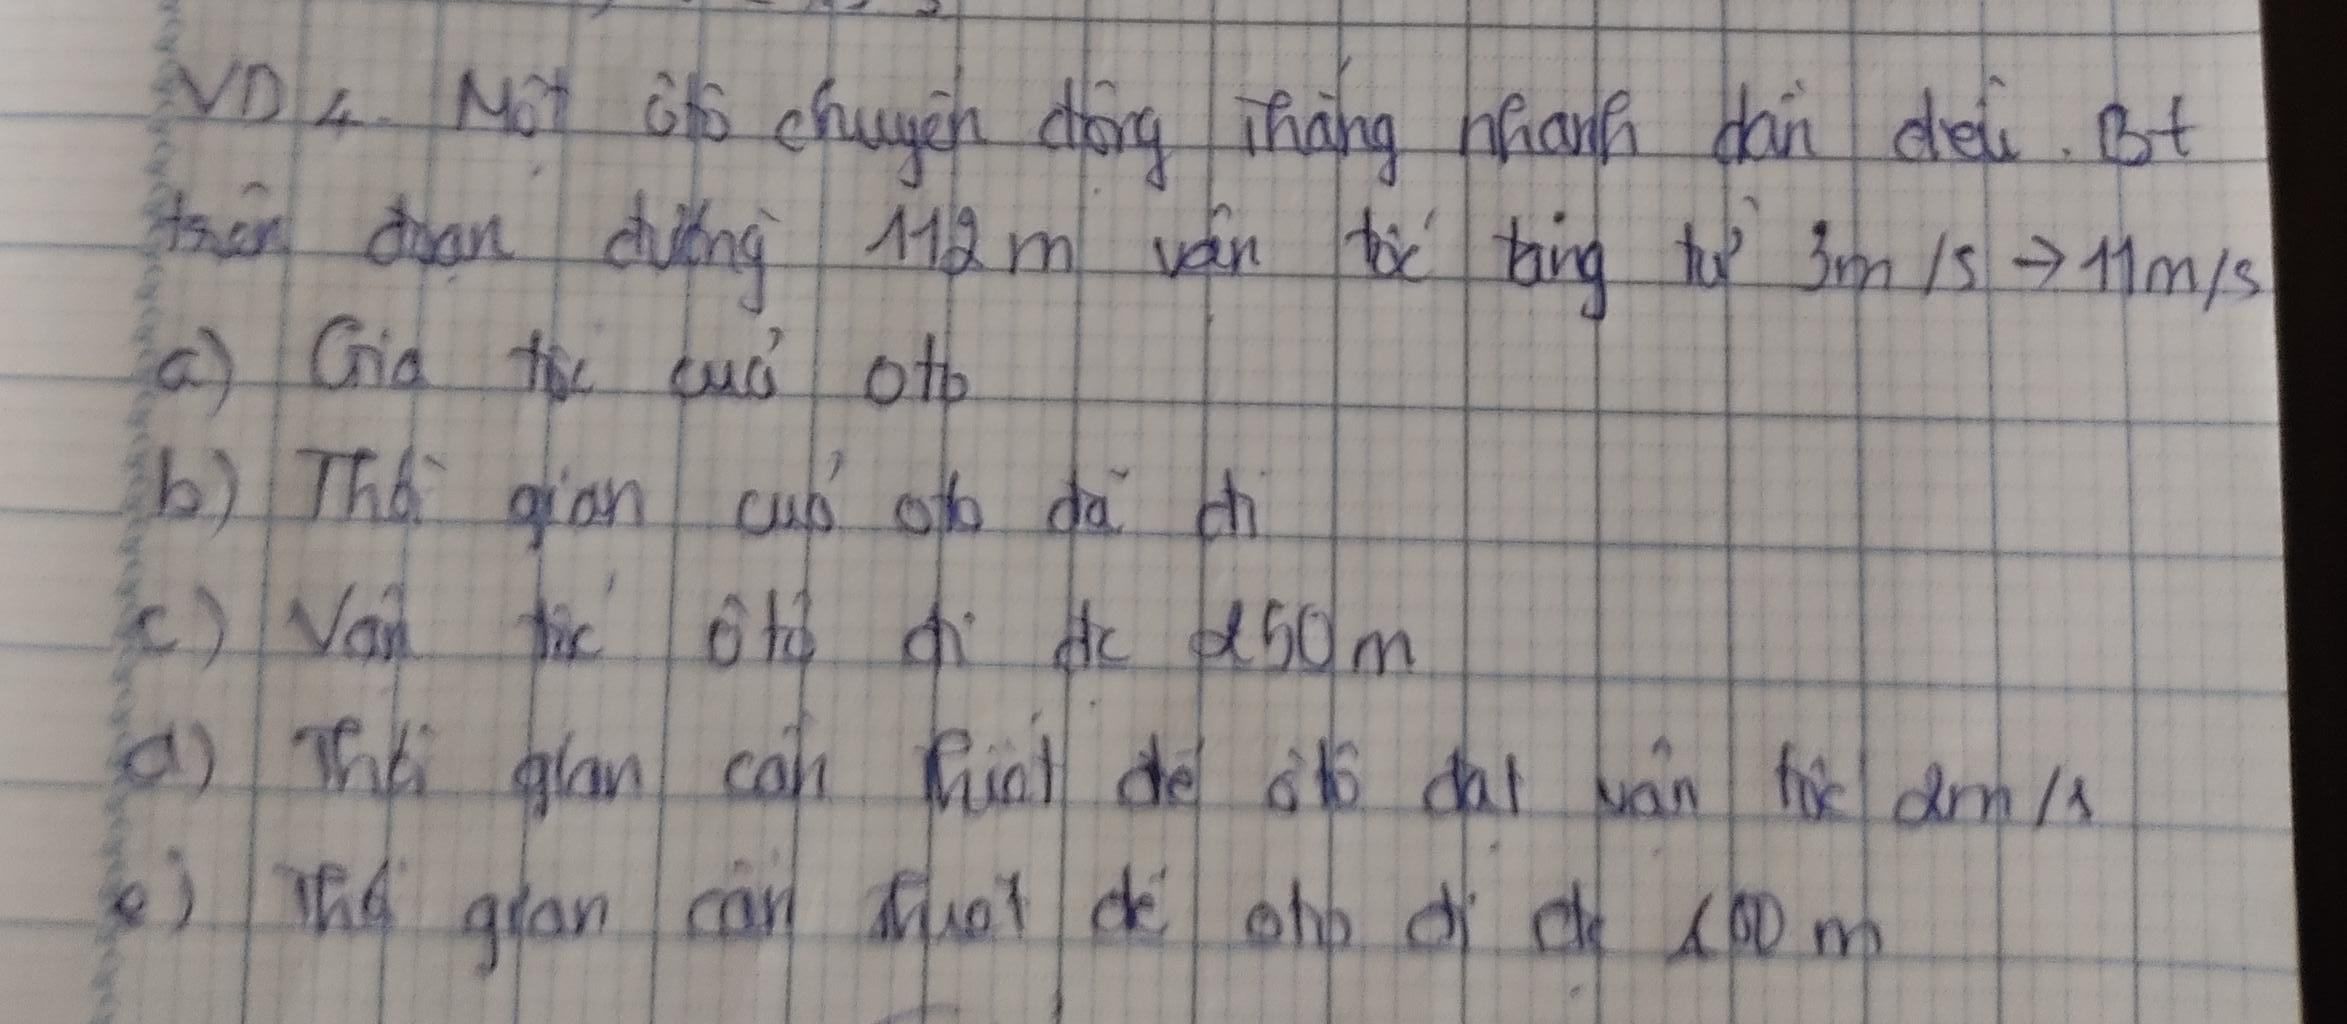 VD 4. Một ôtô chuyển động thẳng nhanh dần đều. Bt
trên đoạn đường 112m vận tốc tăng từ 3m/s → 11m/s
a) Gia tốc của oto
b) Thời gian của oto đã đi
c) Vận tốc ôtô đi đc 250m
d) Thời gian cần thiết để ôtô đạt vận tốc 2m/s
e) Thời gian cần thiết để oto đi đc 100m